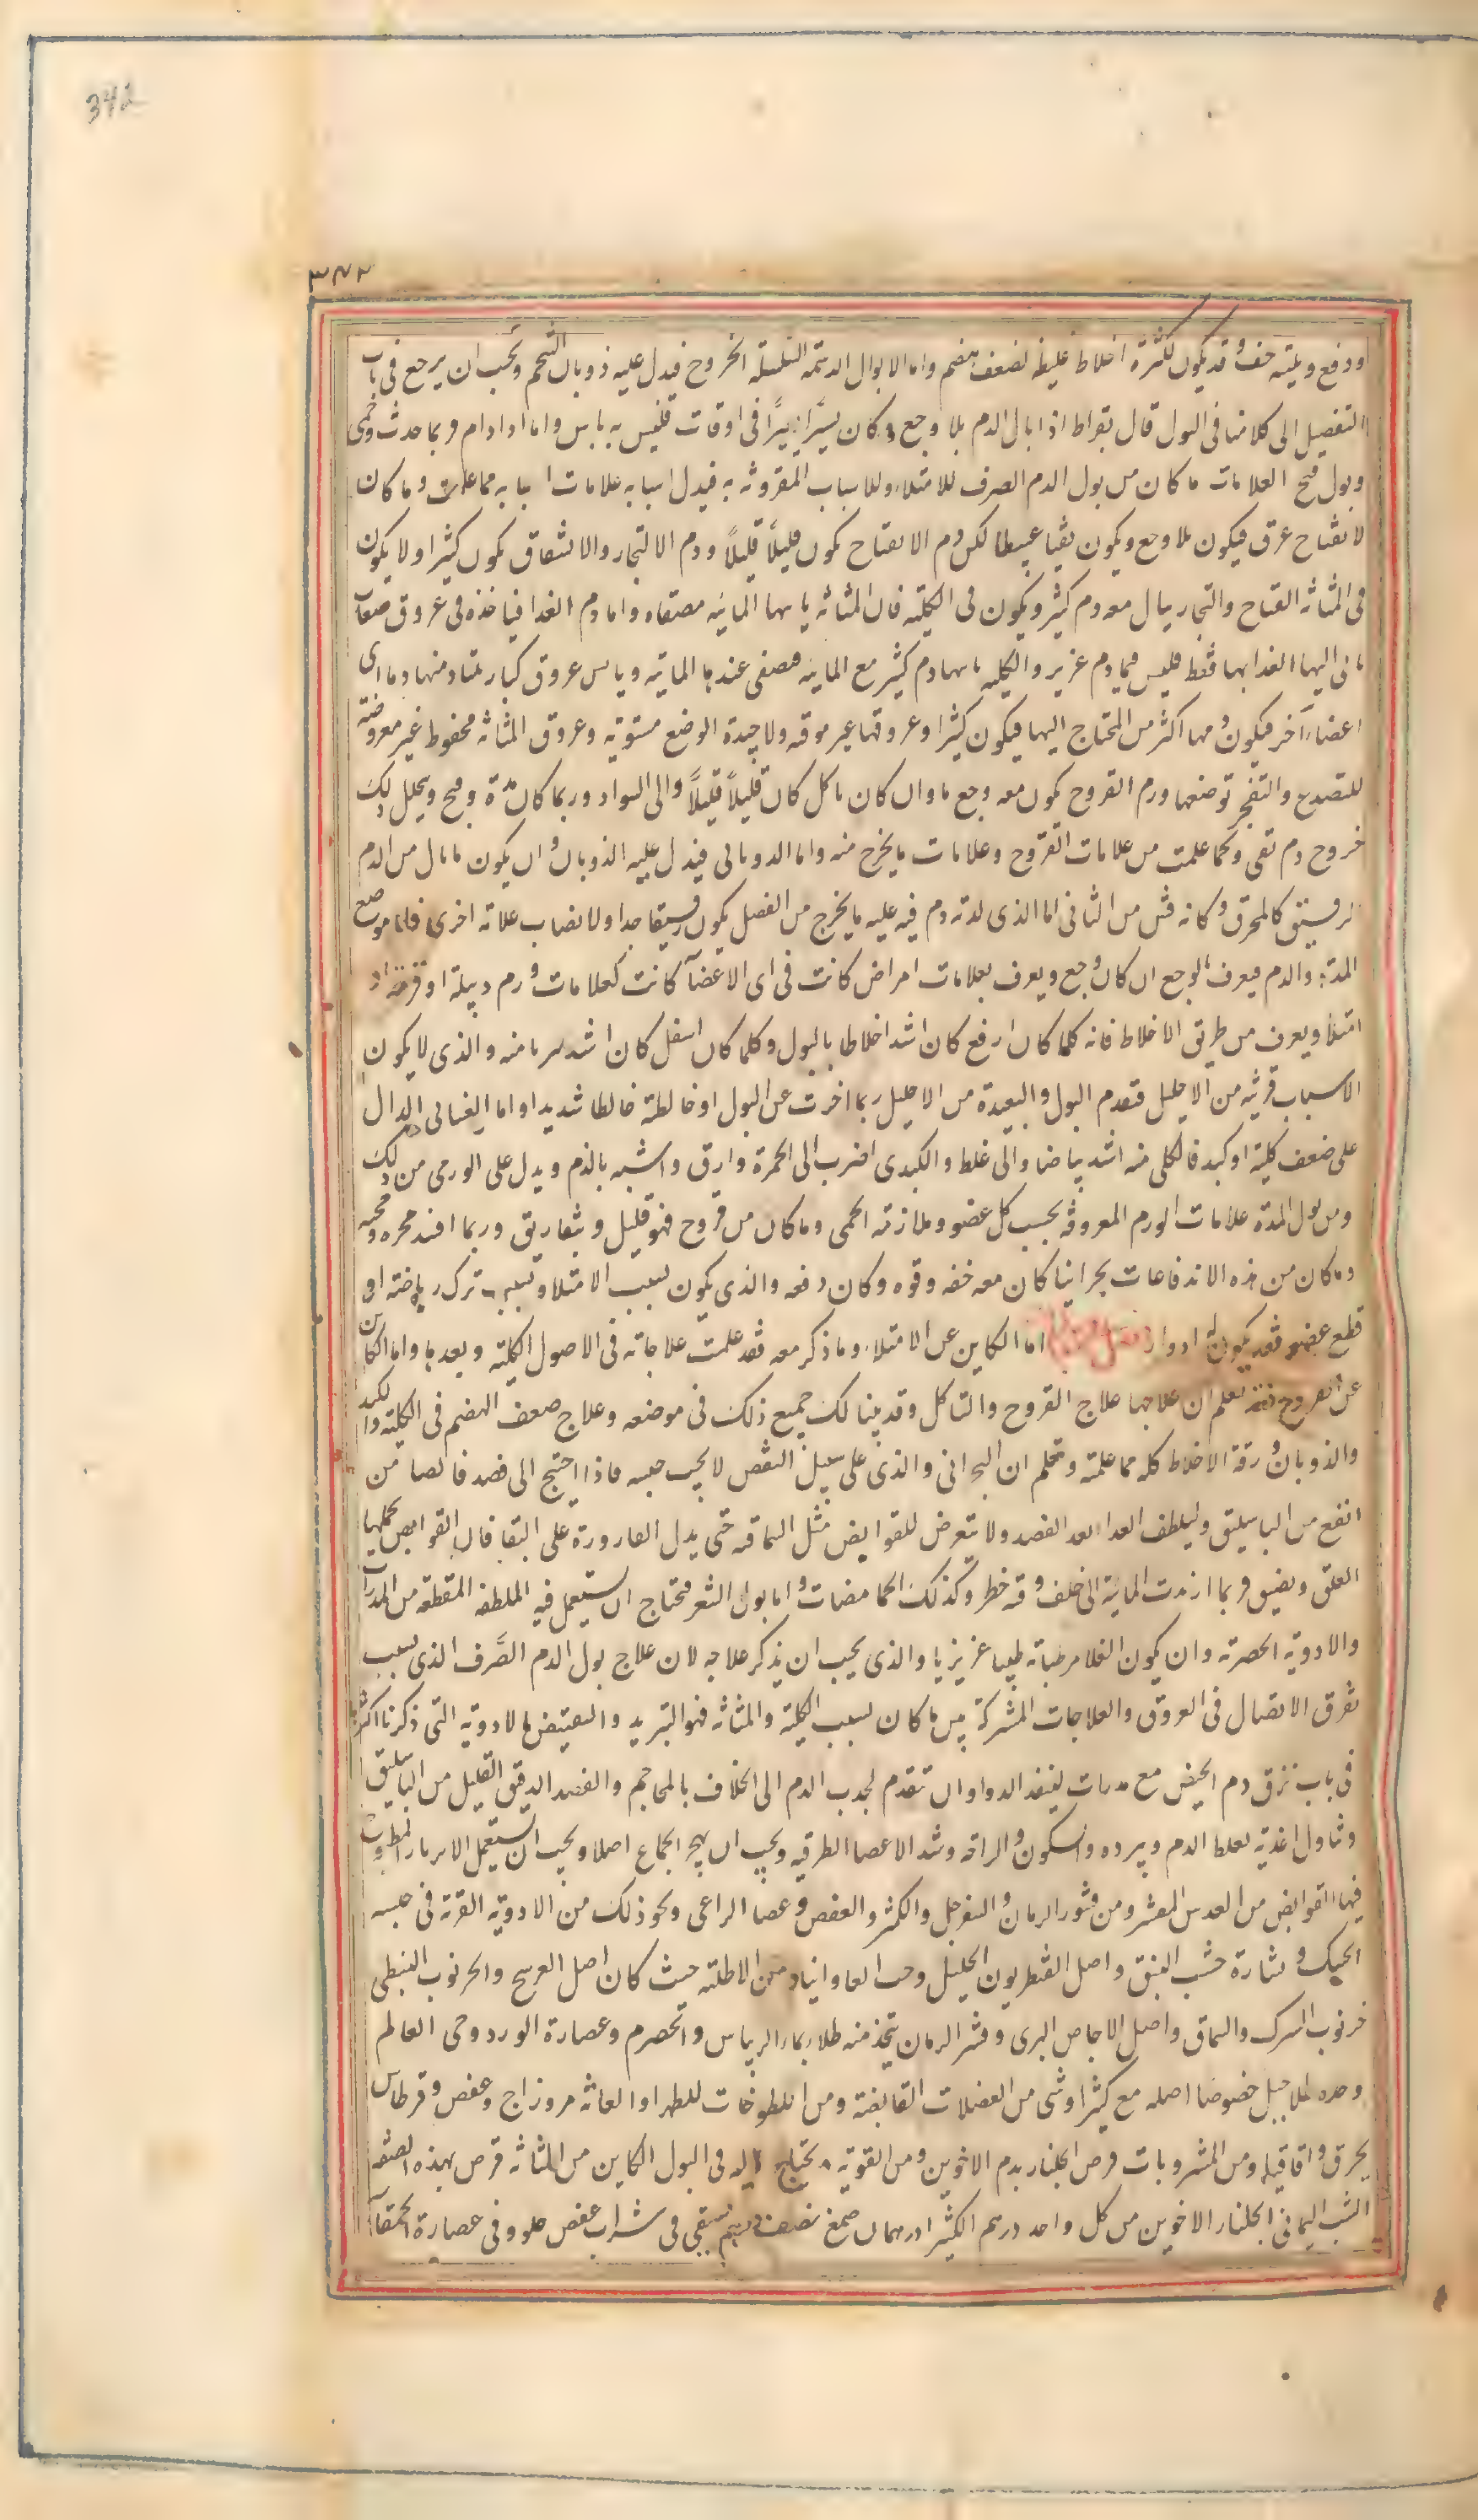 342
٣٤٢
او دفع ويليه خف وقد يكون لكثرة اخلاط غليظه لضعف هضم واما الابوال الدسمة السلسلة الخروج فيدل عليه ذوبان الشحم ويجب ان يرجع فى باب
التفصيل الى كلامنا فى البول قال بقراط اذا بال الدم بلا وجع وكان يسيرًا يسيرًا فى اوقات فليس به باس واما اذا دام فربما حدث حمى
وبول قيح العلامات ما كان من بول الدم الصرف للامتلاء وللاسباب المقرونة به فيدل اسبابه علامات اسبابه مما علمت وما كان
لانفتاح عرق فيكون بلا وجع ويكون نقيا عبيطا لكن دم الانفتاح يكون قليلًا قليلًا ودم الانفجار والانشقاق يكون كثيرا ولا يكون
فى المثانة انفتاح وانفجار يبال معه دم كثير ويكون فى الكلية فان المثانة ياتيها المائية مصفاه واما دم الغذا فياخذه فى عروق صغار
ياتى اليها الغذا بها فقط فليس فيها دم غزير والكلية ياتيها دم كثير مع المائية فيصفى عندها المائية وياتي من عروق كبار يمتاد منها دما الى
اعضاء آخر فيكون دمها اكثر من المحتاج اليها فيكون كثيرا وعروقها غير موقه ولا جيدة الوضع مستوية وعروق المثانة محفوظ غير معروضة
للتصدع والتفجر توضعها ودم القروح يكون معه وجع ما وان كان تاكل كان قليلًا قليلًا والى السواد وربما كان مدة وقيح ويخلل ذلك
خروج دم نقى وكما علمت من علامات القروح وعلامات ما يخرج منه واما الذوبانى فيدل عليه الذوبان وان يكون ما بال من الدم
الرقيق كالمحرق وكانه قش من الثانى اما الذى لدته دم فيه عليه ما يخرج من الفصل يكون رقيقا جدا ولا نصاب علاته اخرى فاما موضع
المدة والدم فيعرف بالوجع ان كان وجع ويعرف بعلامات امراض كانت فى اى الاعضآ كانت كعلامات ورم دبيلة او قرحة او
امتلا ويعرف من طريق الاخلاط فانه كلما كان ارفع كان اشد اخلاطا بالبول وكلما كان اسفل كان اشد تبريا منه والذى لا يكون
الاسباب قريبة من الاحليل فتقدم البول والبعيدة من الاحليل ربما اخرت عن البول او خالطته خالطا شديدا واما الغسالى الدال
على ضعف كلية او كبد فالكلى منه اشد بياضا والى غلظ والكبدى اضرب الى الحمرة وارق واشبه بالدم ويدل على الورمى من ذلك
ومن بول المدة علامات الورم المعروفه بحسب كل عضو وملازته الحمى وما كان من قروح فهو قليل وبتفاريق وربما افسد مجره وقحبه
وما كان من هذه الاندفاعات بحرانيا كان معه خفه وقوه وكان دفعه والذى يكون بسبب الامتلا وبسبب ترك رياضته او
قطع عضو فقد يكون له ادوار اما الكاين عن الامتلاء وما ذكر معه فقد علمت علاجاته فى الاصول الكلية وبعدها واما الكاين
عن القروح فقد تعلم ان علاجها علاج القروح والتاكل وقد بينا لك جميع ذلك فى موضعه وعلاج ضعف الهضم فى الكلية والكبد
والذوبان ورقة الاخلاط كله مما علمته وتعلم ان البحرانى والذى على سبيل النفض لا يجب حبسه فاذا احتيج الى فصد فالصافن
انفع من الباسليق وليلطف الغدا بعد الفصد ولا تتعرض للقوابض مثل السماقيه حتى يدل القارورة على النقا فان القوابض يحملها
العلق ويضيق فربما ارتدت المائية الى خلف وقه خطر وكذلك الحامضات واما بول الشعر فيحتاج ان يستعمل فيه الملطفه المقطعه من المدرات
والادوية الحصرته وان يكون الغلا مرطباته طبيبا غزيزيا والذى يجب ان يذكر علاجه لان علاج بول الدم الصرف الذى بسبب
تفرق الاتصال فى العروق والعلاجات المشتركة بين ما كان بسبب الكلية والمثانة فهو التبريد والتقبيض بالادوية التى ذكرنا اكثرها
فى باب نزف دم الحيض مع مدرات لينفذ الدوا وان تتقدم لجذب الدم الى الخلاف بالمحاجم والفصد الدقيق القليل من الباسليق
وتناول اغذية تغلظ الدم ويبرده والسكون والراحة وشد الاعضا الطرفيه ويجب ان يهجر الجماع اصلا ويجب ان يستعمل الابزيارات المطبوخ
فيها القوابض من العدس المقشر ومن قشور الرمان والسفرجل والكمثر والعفص وعصا الراعى ونحو ذلك من الادوية القوية فى حبسه
الحيك ونشارة خشب النبق واصل القنطريون الجليل وحب الفاوانيا ومن الاطلية حيث كان اصل العوسج والخرنوب النبطى
خرنوب الشرك والسماق واصل الاجاص البرى وقشر الرمان يتخذ منه طلاء بماء الريباس والحصرم وعصارة الورد وحى العالم
وحده للاحبيل خصوصا اصله مع كثيرا وشى من العضلات القابضة ومن اللطوخات للظهر او العانة مروزاج وعفص وقرطاس
يحرق واقاقيا ومن المشروبات قرص الجلنار بدم الاخوين ومن القوية ويحتاج اليه فى البول الكاين من المثانه قرص بهذه الصفه
الشب اليمانى الجلنار الاخوين من كل واحد درهم الكثيرا درهمان صمغ نصف درهم يسقى فى شراب عفص حلو وفى عصارة الحمقآء